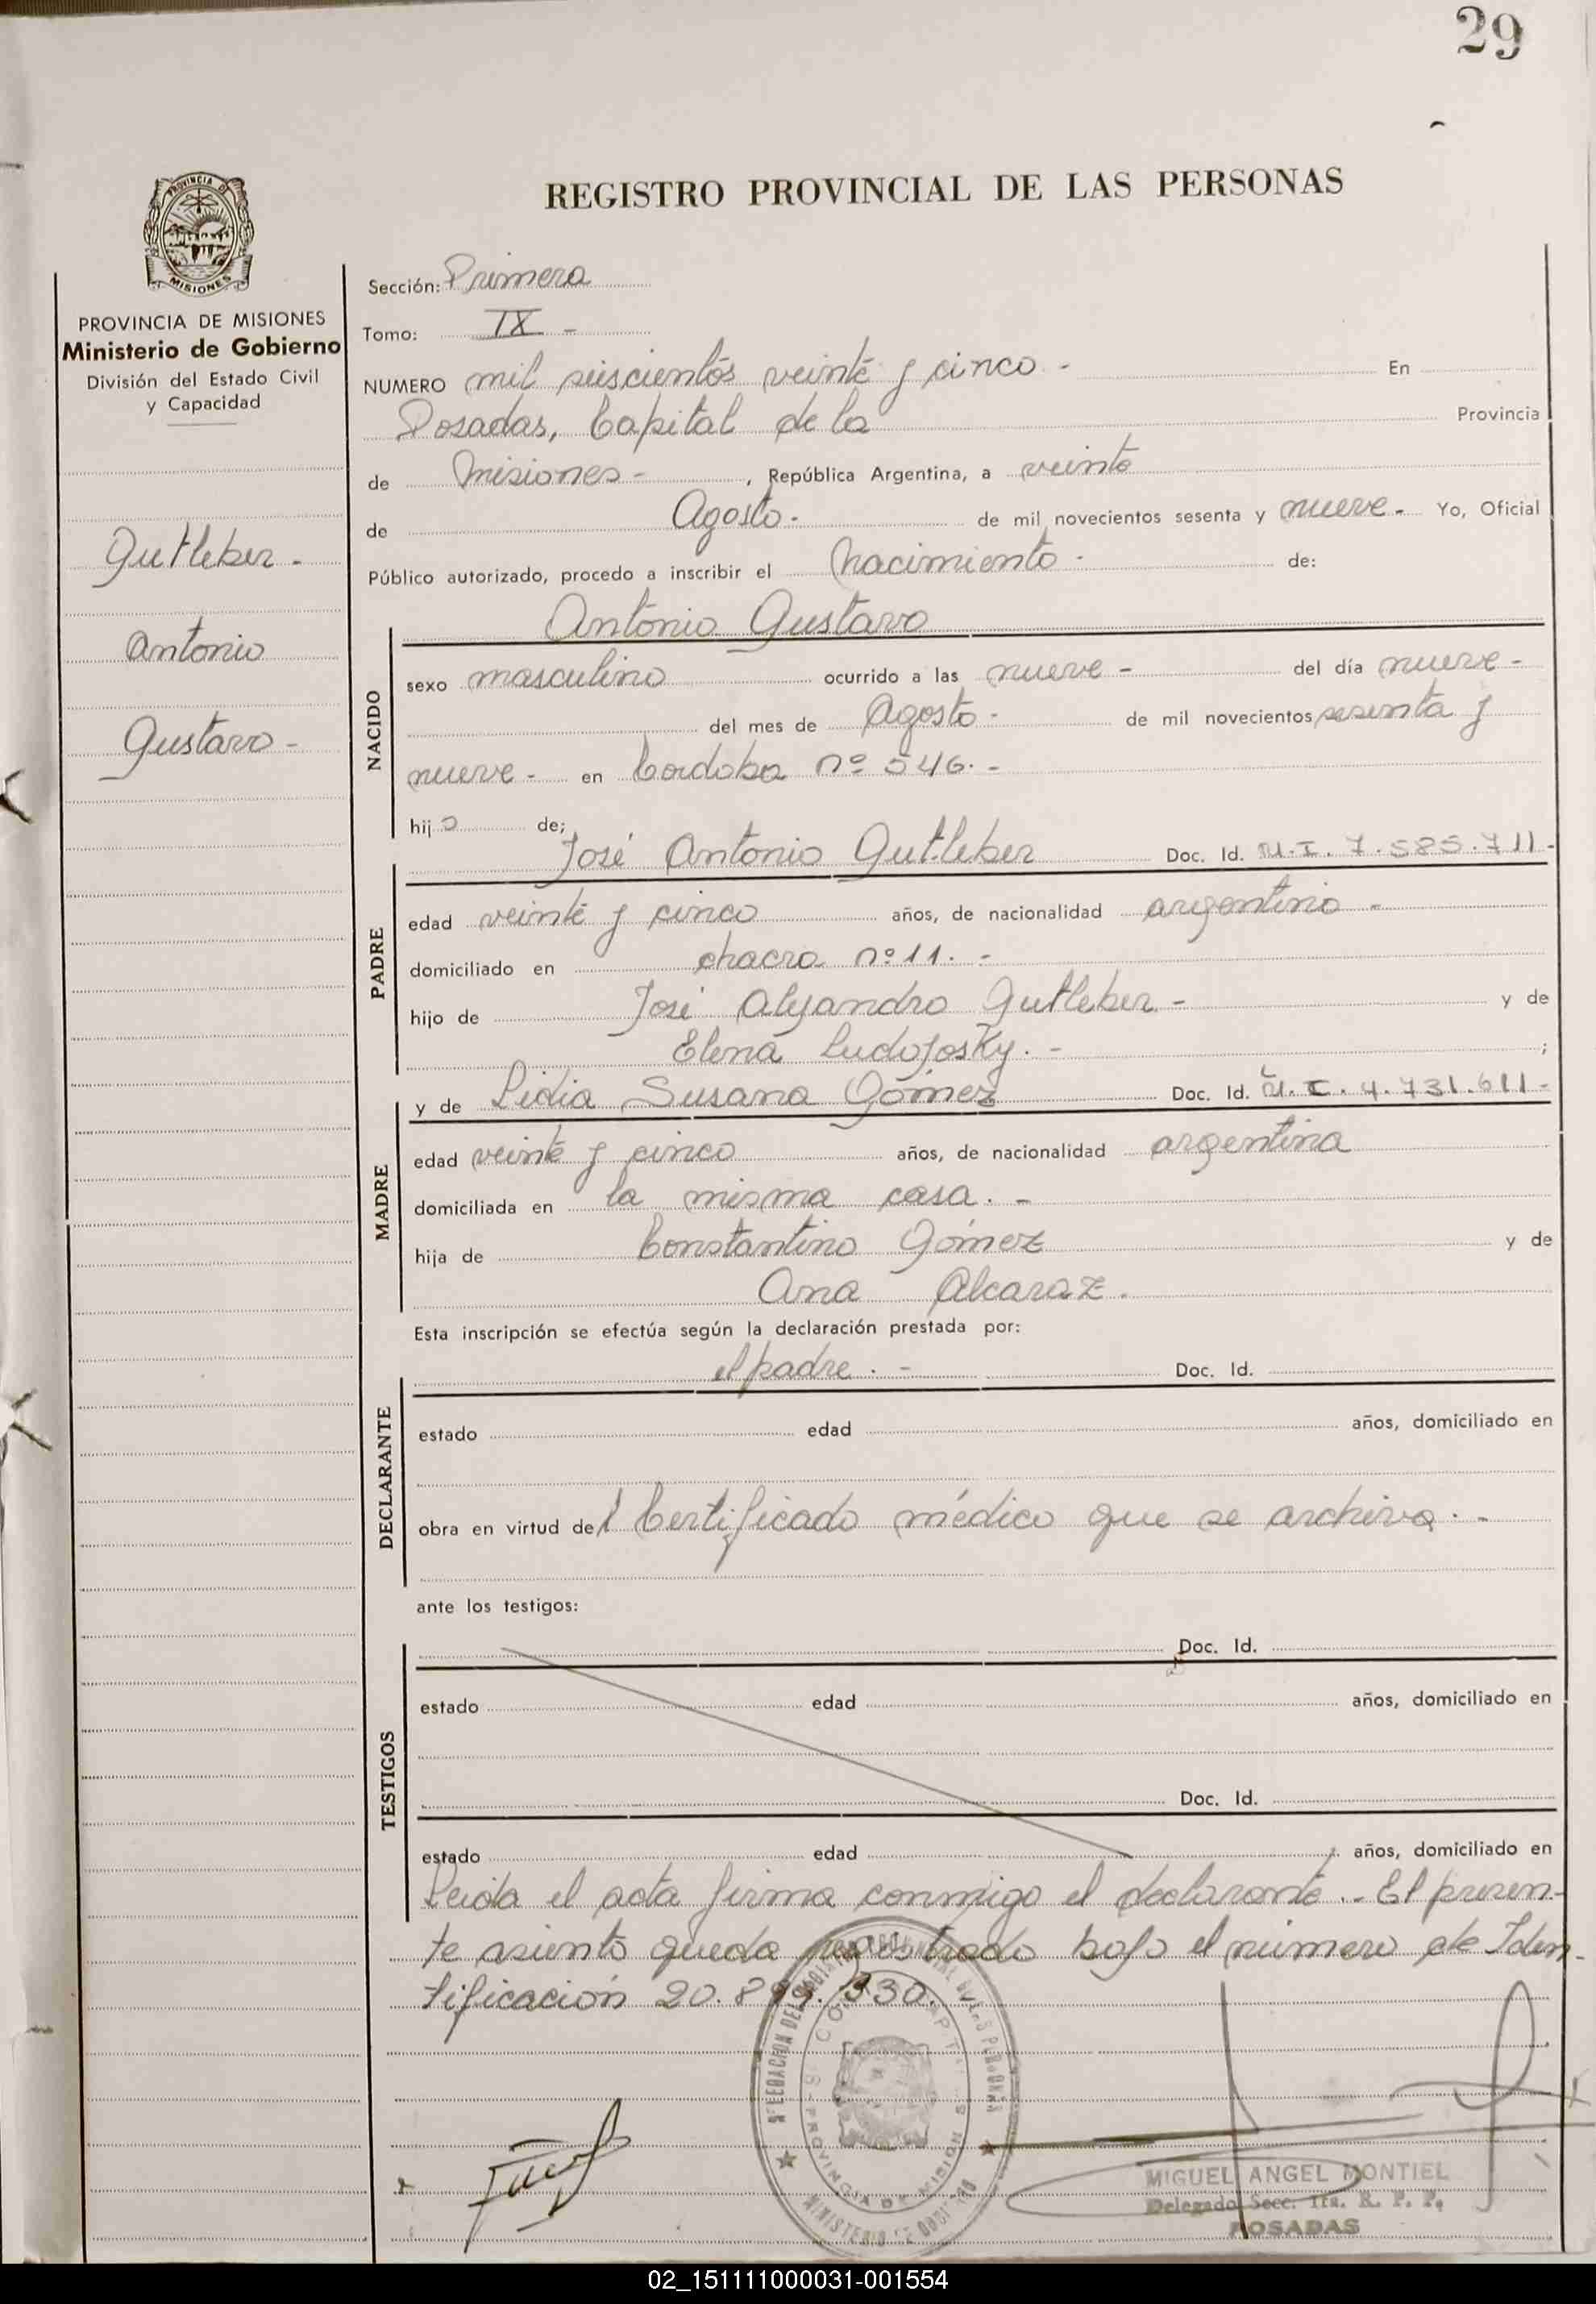 29
REGISTRO PROVINCIAL DE LAS PERSONAS
PROVINCIA DE MISIONES
Ministerio de Gobierno
División del Estado Civil
y Capacidad
Gutleber -
Antonio
Gustavo -
Sección: Primera
Tomo: IX -
NUMERO mil seiscientos veinte y cinco - En
Posadas, Capital de la Provincia
de Misiones - , República Argentina, a veinte
de Agosto. de mil novecientos sesenta y nueve - Yo, Oficial
Público autorizado, procedo a inscribir el Nacimiento - de:
Antonio Gustavo
NACIDO
sexo masculino ocurrido a las nueve - del día nueve -
del mes de Agosto - de mil novecientos sesenta y
nueve - en Cordoba nº 546. -
hijo de;
José Antonio Gutleber Doc. Id. M.I. 7.585.711-
PADRE
edad veinte y cinco años, de nacionalidad argentino -
domiciliado en chacra nº 11. -
hijo de José Alejandro Gutleber - y de
Elena Ludojosky. - ;
y de Lidia Susana Gómez Doc. Id. M.I. 4.731.611-
MADRE
edad veinte y cinco años, de nacionalidad argentina
domiciliada en la misma casa. -
hija de Constantino Gómez y de
Ana Alcaraz.
Esta inscripción se efectúa según la declaración prestada por:
el padre. - Doc. Id.
DECLARANTE
estado edad años, domiciliado en
obra en virtud del Certificado médico que se archiva. -
ante los testigos:
Doc. Id.
TESTIGOS
estado edad años, domiciliado en
Doc. Id.
estado edad años, domiciliado en
Leida el acta firma conmigo el declarante.- El presen-
te asiento queda registrado bajo el número de Iden-
tificación 20.899.330. -
MIGUEL ANGEL MONTIEL
Delegado Secc. 1ra. R. P. P.
POSADAS
02_151111000031-001554